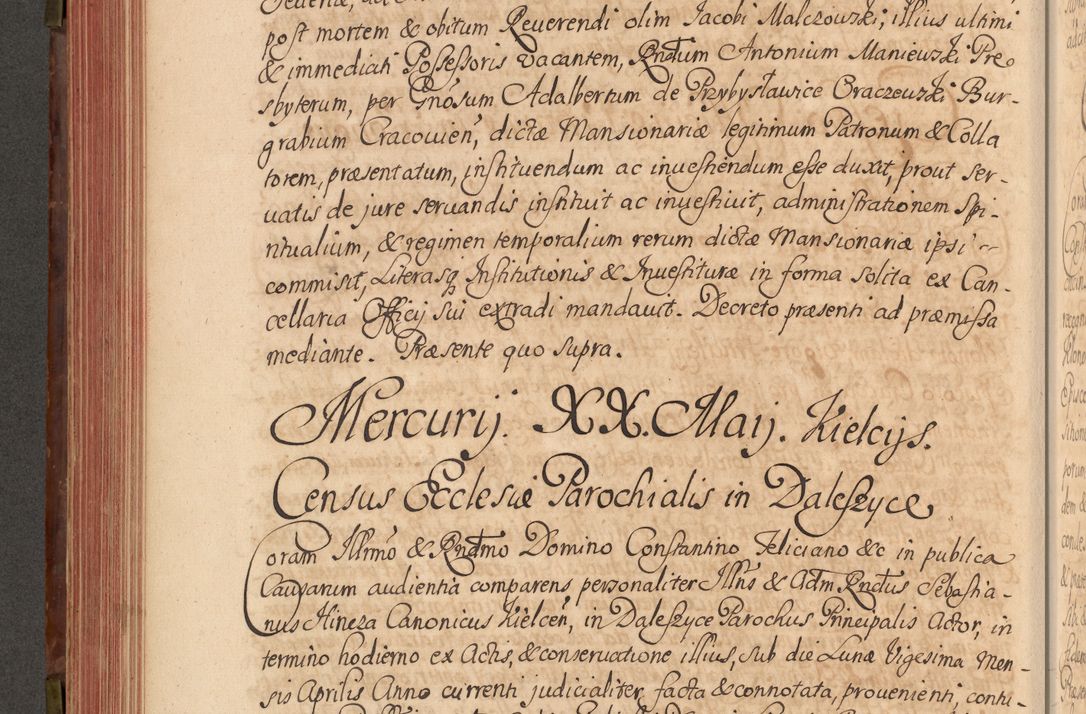 post mortem & obitum Reverendi olim Jacobi Malczowski, illius ultimi
& immediati Possessoris vacantem, Rndum Antonium Maniewski Pre-
sbyterum, per Gnosum Adalbertum de Przybysławice Oraczewski Bur-
grabium Cracovien, dictæ Mansionariæ legitimum Patronum & Colla
torem, præsentatum, instituendum ac investiendum esse duxit, prout ser-
vatis de jure servandis instituit ac investivit, administrationem Spi-
ritualium, & regimen temporalium rerum dictæ Mansionariæ ipsi
commisit, Literasq Institutionis & Investituræ in forma solita ex Can-
cellaria Officij sui extradi mandavit. Decreto præsenti ad præmissa
mediante. Præsente quo supra.
Mercurij. XX. Maij. Kielcijs.
Census Ecclesiæ Parochialis in Daleszyce
Coram Illmo & Rndmo Domino Constantino Feliciano &c in publica
Causarum audientia comparens personaliter Illris & Adm Rndus Sebastia-
nus Hineza Canonicus Kielcen, in Daleszyce Parochus Principalis Actor, in
termino hodierno ex Actis, & conservatione illius, sub die Lunæ Vigesima Men-
sis Aprilis Anno currenti judicialiter facta & connotata, provenienti, contu-